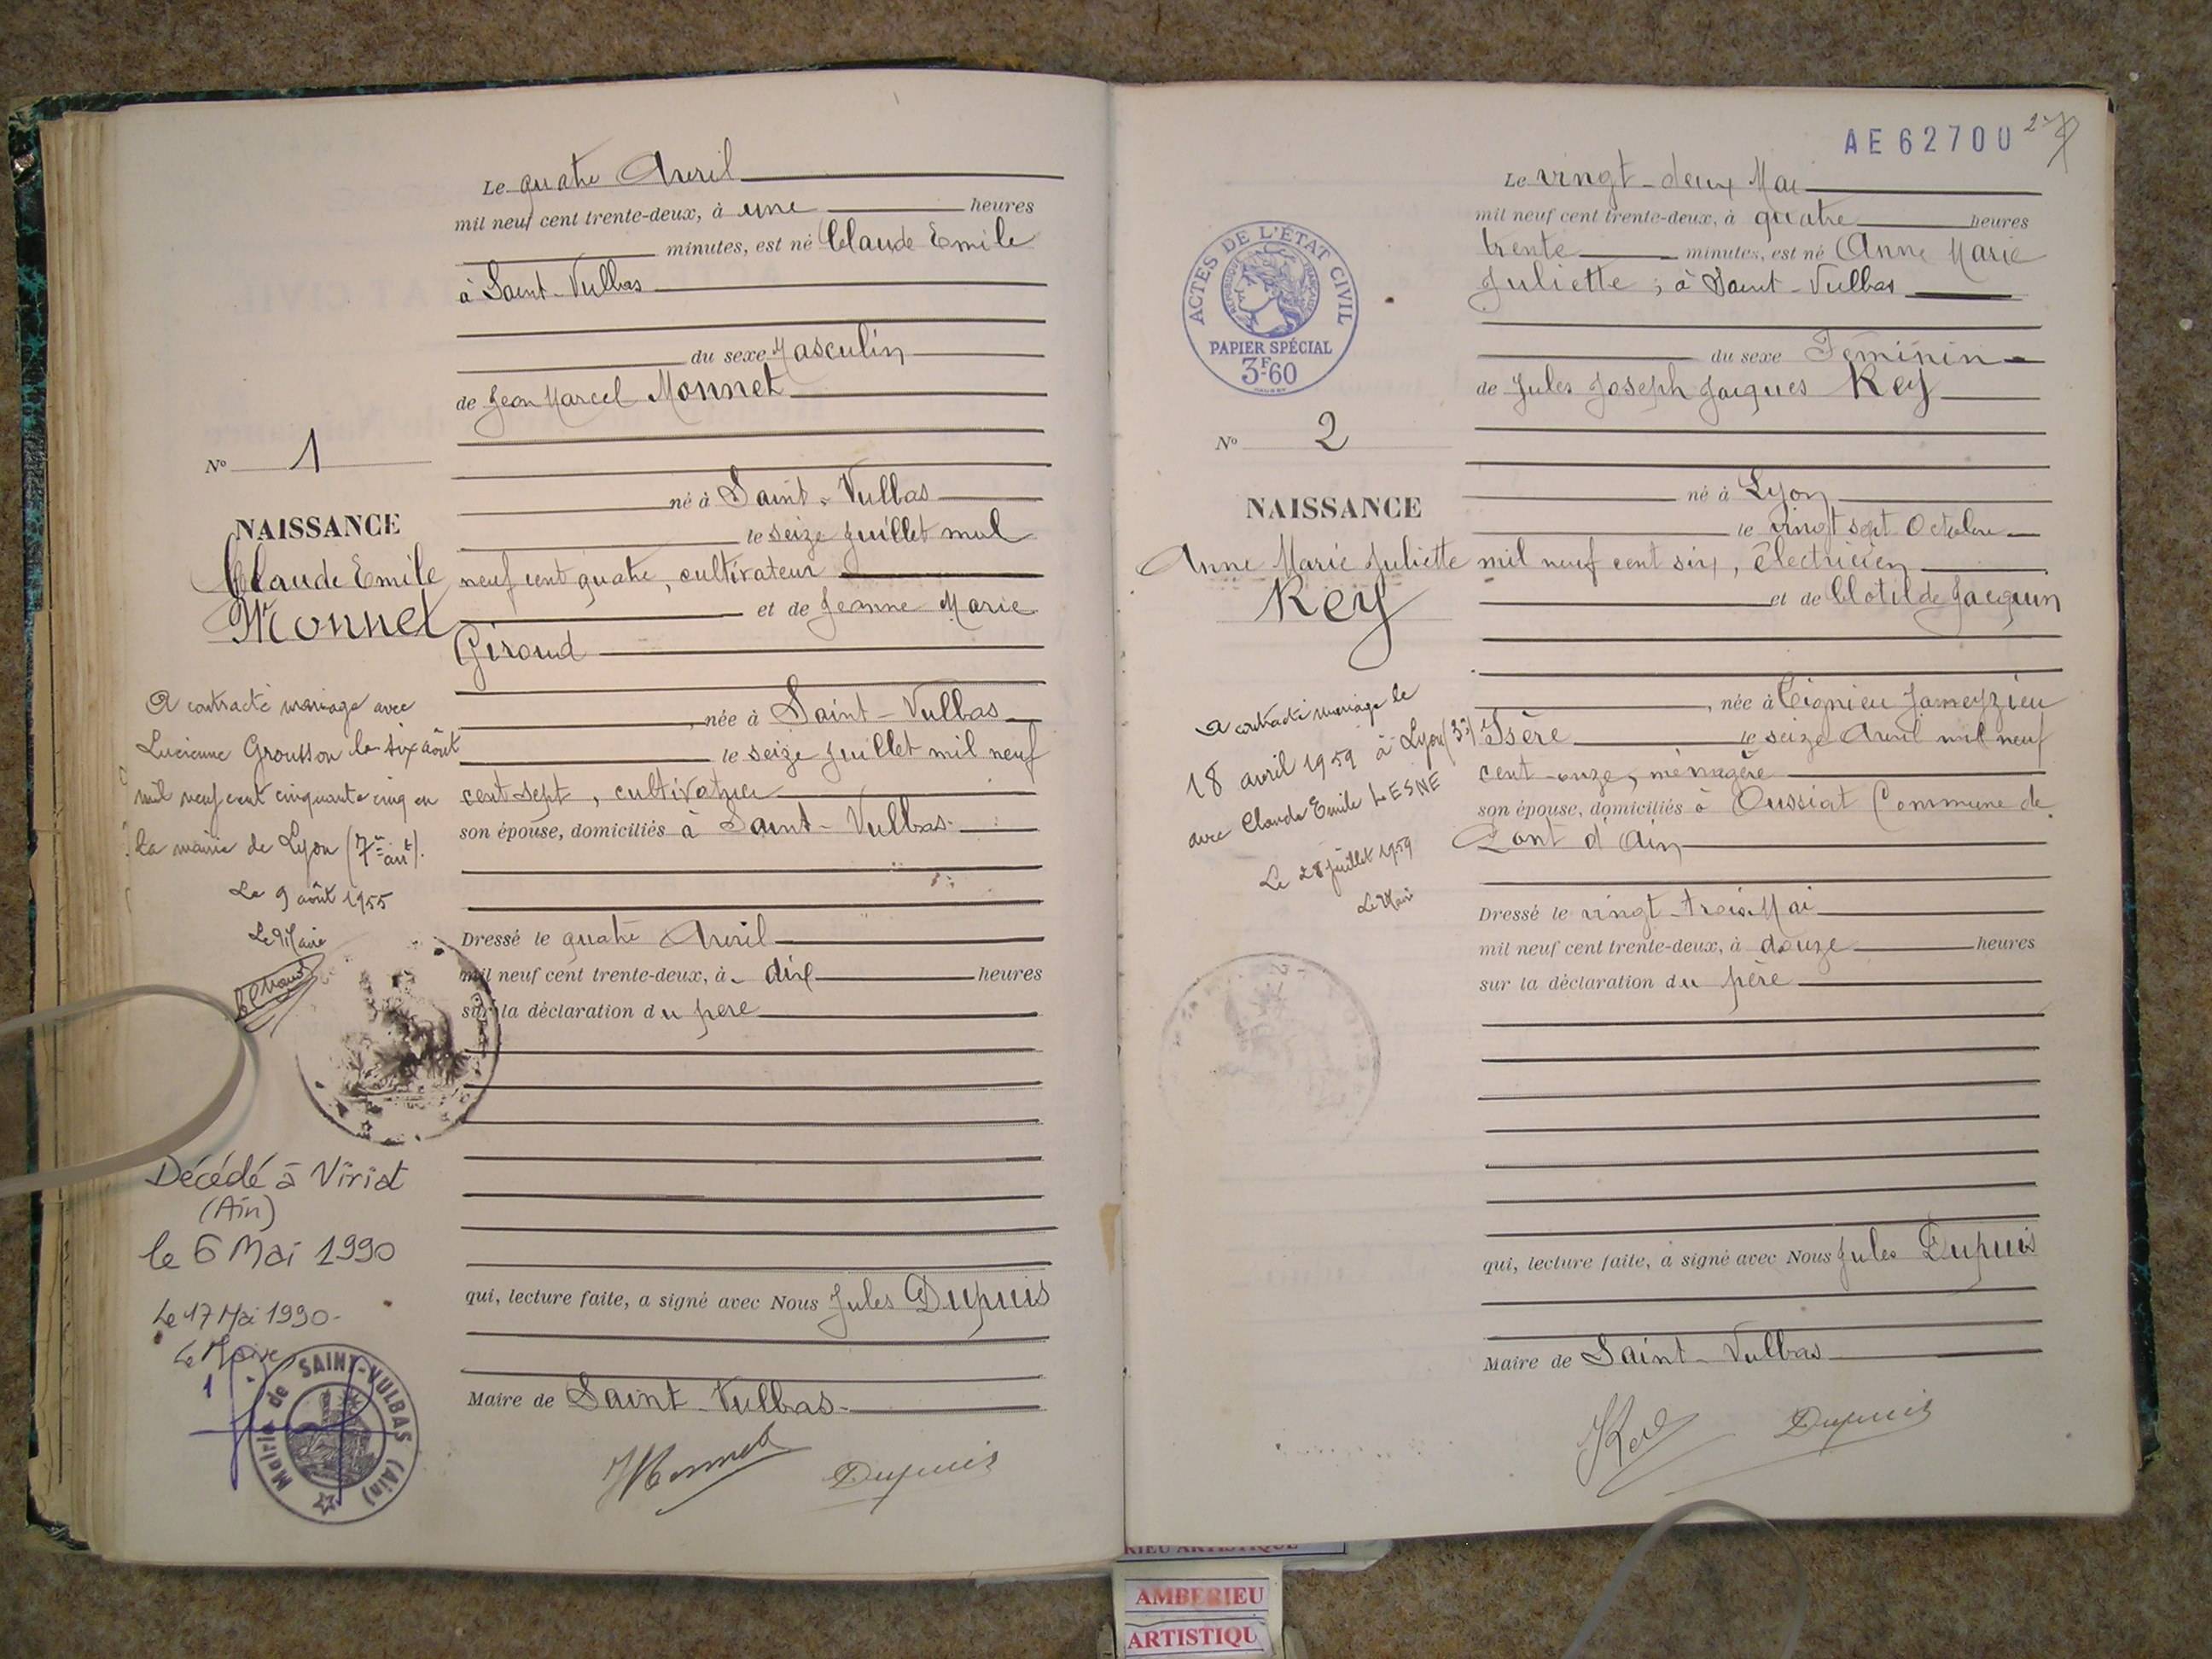 Le quatre Avril
mil neuf cent trente-deux, à une heures
minutes, est né Claude Emile
à Saint-Vulbas
du sexe Masculin
de Jean Marcel Monnet
No 1
né à Saint-Vulbas
NAISSANCE
le seize juillet mil
Claude Emile
neuf cent quatre, cultivateur
Monnet
et de Jeanne Marie
Giroud
A contracté mariage avec
Lucienne Grousson le six août
mil neuf cent cinquante cinq en
la mairie de Lyon (7e art).
Le 9 août 1955
Le Maire
née à Saint-Vulbas
le seize juillet mil neuf
cent sept, cultivatrice
son épouse, domiciliés à Saint-Vulbas
Dressé le quatre Avril
mil neuf cent trente-deux, à dix heures
sur la déclaration du père
Décédé à Viriat
(Ain)
le 6 Mai 1990
Le 17 Mai 1990-
Le Maire
Mairie de SAINT-VULBAS (Ain)
qui, lecture faite, a signé avec Nous Jules Dupuis
Maire de Saint-Vulbas
JMonnet Dupuis
AE 62700
27
Le vingt-deux Mai
mil neuf cent trente-deux, à quatre heures
trente minutes, est né Anne Marie
Juliette ; à Saint-Vulbas
du sexe Féminin
de Jules Joseph Jacques Rey
ACTES DE L'ÉTAT CIVIL
RÉPUBLIQUE FRANÇAISE
PAPIER SPÉCIAL
3F60
No 2
né à Lyon
NAISSANCE
le vingt sept Octobre
Anne Marie Juliette
mil neuf cent six, électricien
Rey
et de Clotilde Jacquin
A contracté mariage le
18 avril 1959 à Lyon (3e)
avec Claude Emile LESNE
Le 28 juillet 1959
Le Maire
née à Tignieu Jameyzieu
Isère le seize Avril mil neuf
cent onze, ménagère
son épouse, domiciliés à Oussiat Commune de
Pont d'Ain
Dressé le vingt-trois Mai
mil neuf cent trente-deux, à douze heures
sur la déclaration du père
qui, lecture faite, a signé avec Nous Jules Dupuis
Maire de Saint-Vulbas
Dupuis
AMBERIEU
ARTISTIQU